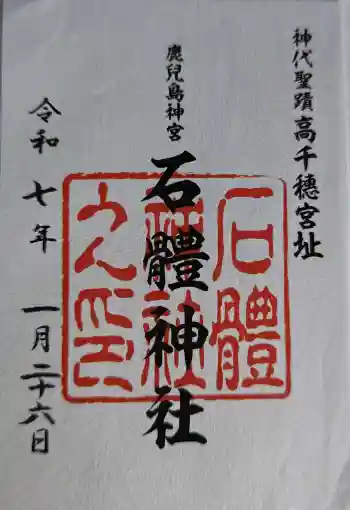 神代聖蹟高千穗宮址
鹿兒島神宮
石體神社
石體
神社
令和七年一月二十六日